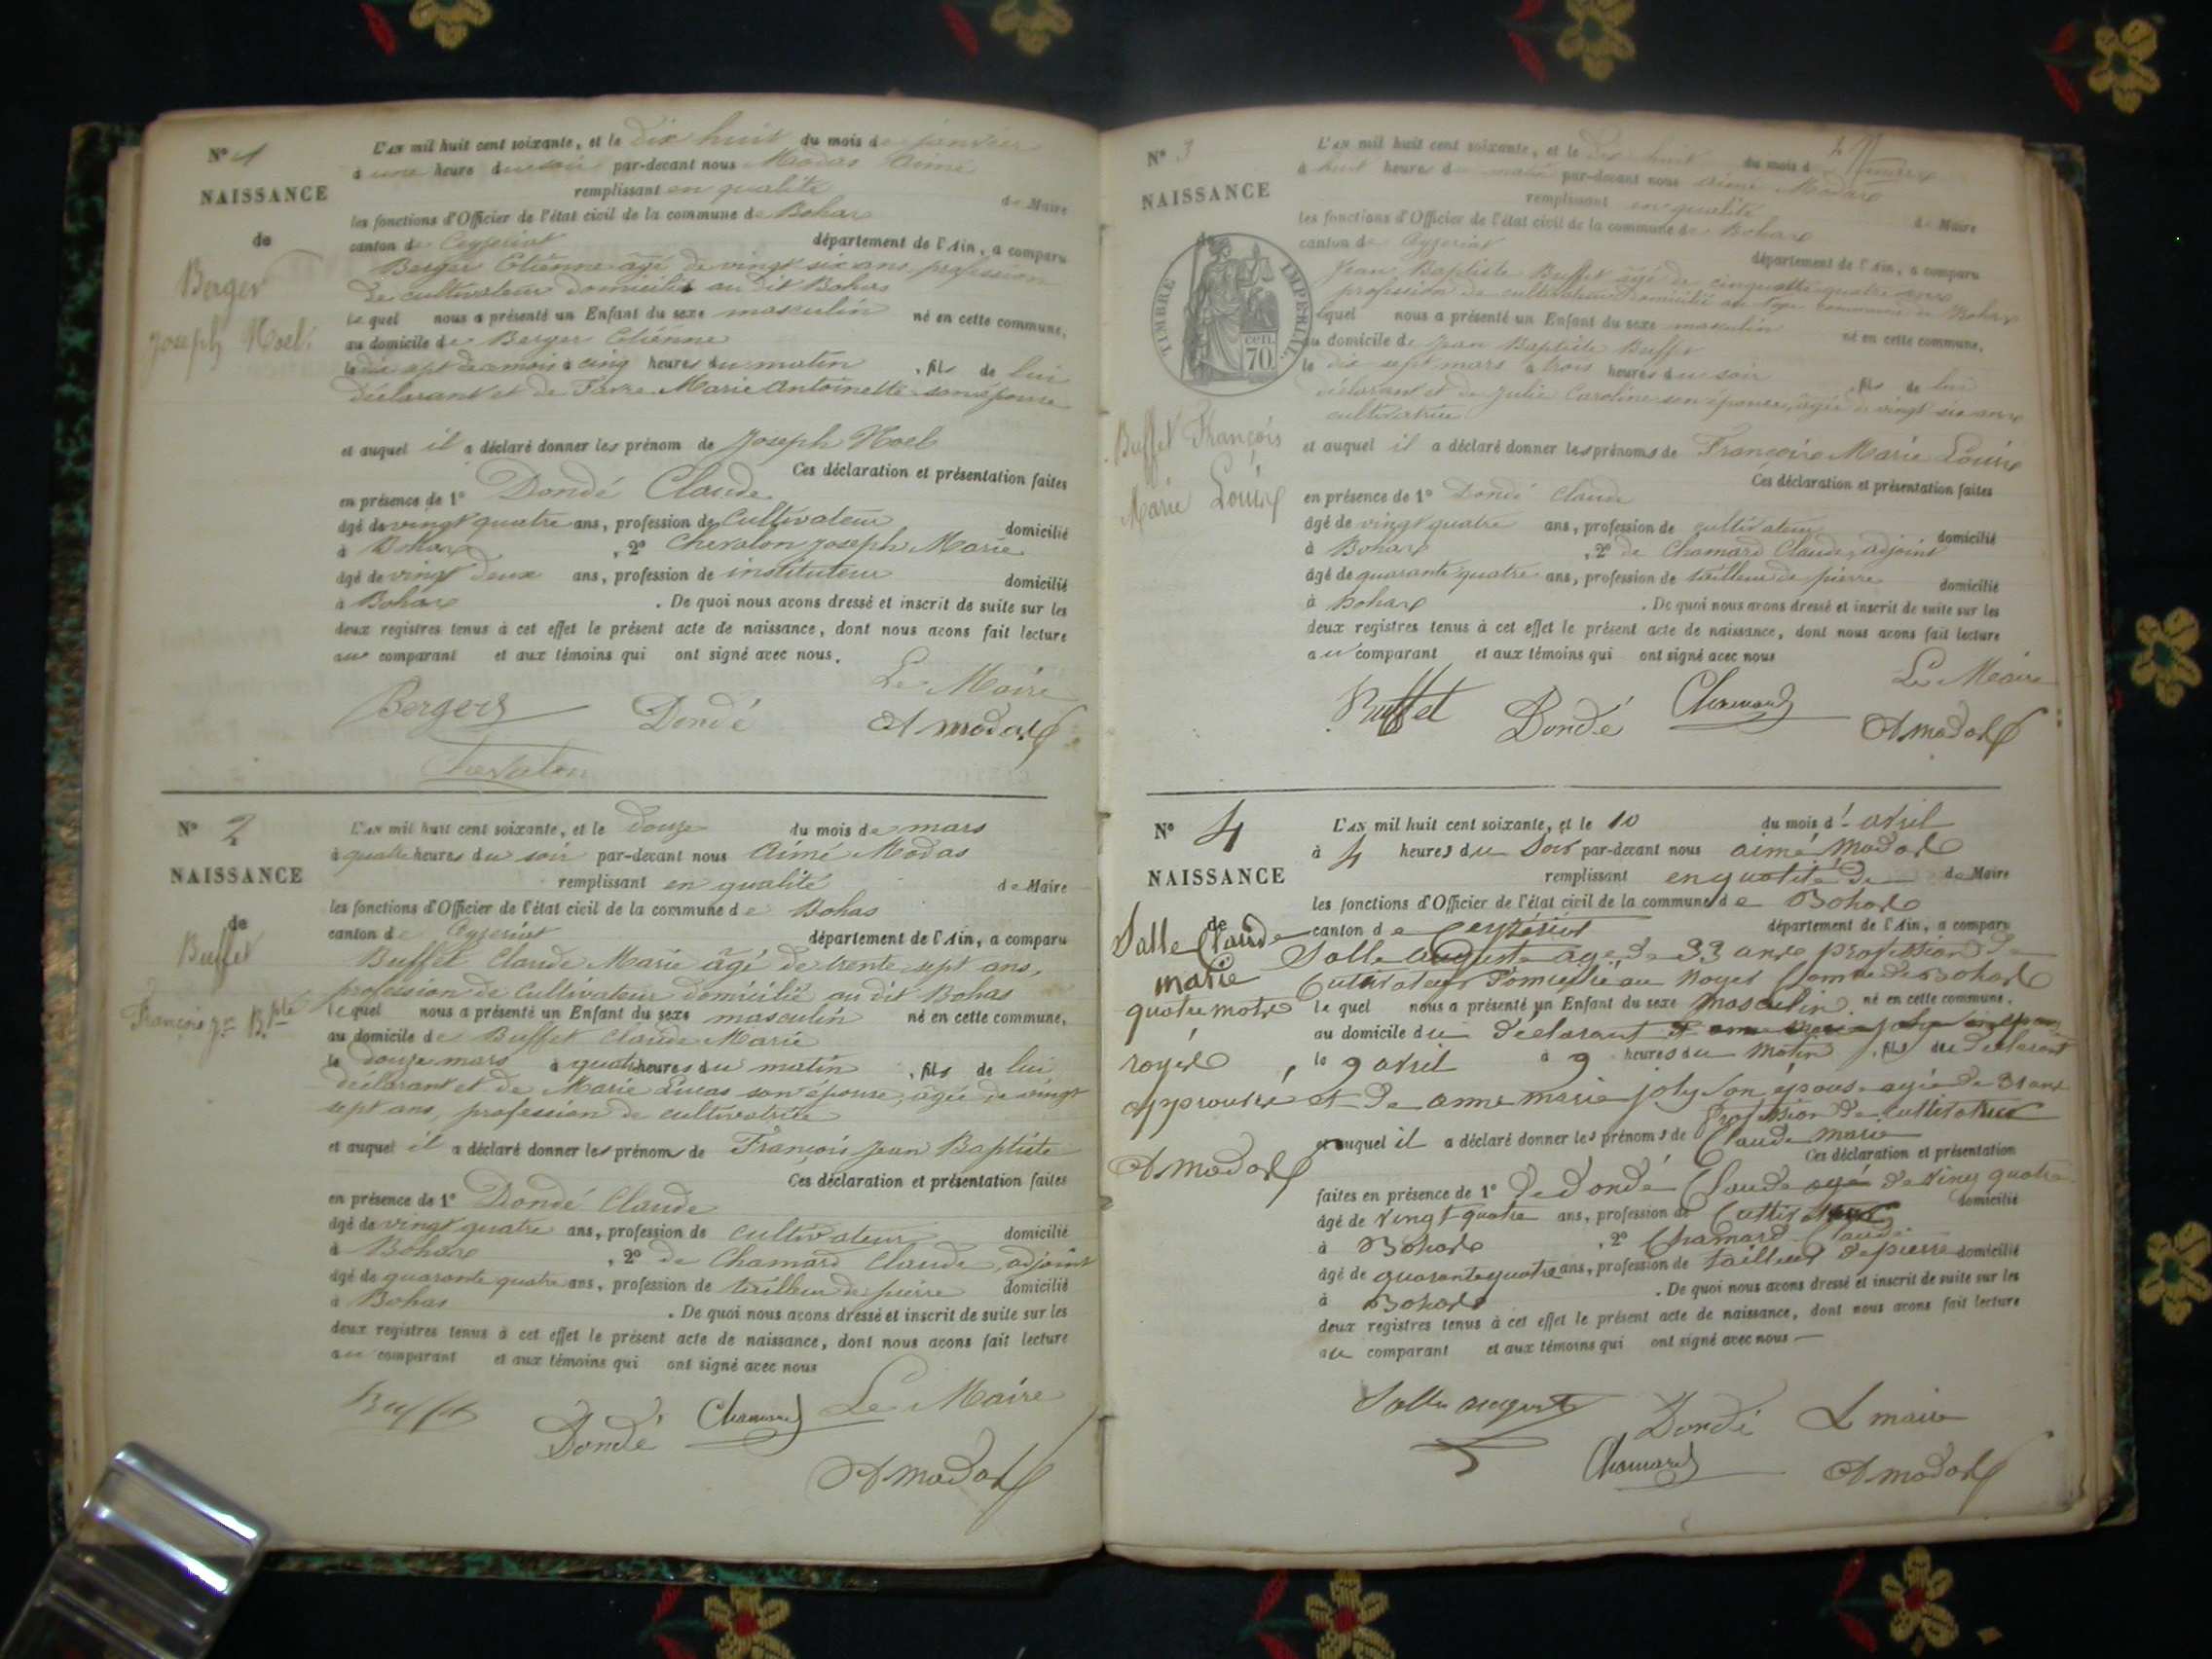 N° 1
NAISSANCE
de
Berger
Joseph Noel
L'AN mil huit cent soixante, et le dix huit du mois de janvier
à une heure du soir par-devant nous Modas Aimé
remplissant en qualité de Maire
les fonctions d'Officier de l'état civil de la commune de Bohas
canton de Ceyzeriat département de l'Ain, a comparu
Berger Etienne âgé de vingt six ans, profession
de cultivateur domicilié au dit Bohas
lequel nous a présenté un Enfant du sexe masculin né en cette commune,
au domicile de Berger Etienne
le dix sept de mois à cinq heures du matin, fils de lui
déclarant et de Favre Marie Antoinette son épouse
et auquel il a déclaré donner les prénom de Joseph Noel
Ces déclaration et présentation faites
en présence de 1° Dondé Claude
âgé de vingt quatre ans, profession de Cultivateur domicilié
à Bohas, 2° Chevalon Joseph Marie
âgé de vingt deux ans, profession de instituteur domicilié
à Bohas. De quoi nous avons dressé et inscrit de suite sur les
deux registres tenus à cet effet le présent acte de naissance, dont nous avons fait lecture
au comparant et aux témoins qui ont signé avec nous.
Le Maire
Berger Dondé A Modas
Chevalon
N° 2
NAISSANCE
de
Buffet
François Jn Bpte
L'AN mil huit cent soixante, et le douze du mois de mars
à quatre heures du soir par-devant nous Aimé Modas
remplissant en qualité de Maire
les fonctions d'Officier de l'état civil de la commune de Bohas
canton de Ceyzeriat département de l'Ain, a comparu
Buffet Claude Marie âgé de trente sept ans,
profession de cultivateur domicilié au dit Bohas
lequel nous a présenté un Enfant du sexe masculin né en cette commune,
au domicile de Buffet Claude Marie
le douze mars à quatre heures du matin, fils de lui
déclarant et de Marie Lucas son épouse, âgée de vingt
sept ans, profession de cultivatrice
et auquel il a déclaré donner les prénoms de François Jean Baptiste
Ces déclaration et présentation faites
en présence de 1° Dondé Claude
âgé de vingt quatre ans, profession de cultivateur domicilié
à Bohas, 2° de Chamard Claude, adjoint
âgé de quarante quatre ans, profession de tailleur de pierre domicilié
à Bohas. De quoi nous avons dressé et inscrit de suite sur les
deux registres tenus à cet effet le présent acte de naissance, dont nous avons fait lecture
au comparant et aux témoins qui ont signé avec nous
Buffet Dondé Chamard Le Maire
A Modas
N° 3
NAISSANCE
de
TIMBRE IMPERIAL
70 cen.
Buffet François
Marie Louis
L'AN mil huit cent soixante, et le dix huit du mois de mars
à huit heures du matin par-devant nous Aimé Modas
remplissant en qualité de Maire
les fonctions d'Officier de l'état civil de la commune de Bohas
canton de Ceyzeriat département de l'Ain, a comparu
Jean Baptiste Buffet âgé de cinquante quatre ans
profession de cultivateur domicilié au commune de Bohas
lequel nous a présenté un Enfant du sexe masculin né en cette commune,
au domicile de Jean Baptiste Buffet
le dix sept mars à trois heures du soir, fils de lui
déclarant et de Julie Caroline son épouse, âgée de vingt six ans
cultivatrice
et auquel il a déclaré donner les prénoms de François Marie Louis
Ces déclaration et présentation faites
en présence de 1° Dondé Claude
âgé de vingt quatre ans, profession de cultivateur domicilié
à Bohas, 2° de Chamard Claude, adjoint
âgé de quarante quatre ans, profession de tailleur de pierre domicilié
à Bohas. De quoi nous avons dressé et inscrit de suite sur les
deux registres tenus à cet effet le présent acte de naissance, dont nous avons fait lecture
au comparant et aux témoins qui ont signé avec nous
Le Maire
Buffet Dondé Chamard A Modas
N° 4
NAISSANCE
de
Salle Claude
marie
quatre mots
royés
approuvés
A Modas
L'AN mil huit cent soixante, et le 10 du mois d'avril
à 4 heures du Soir par-devant nous aimé Modas
remplissant en qualité de de Maire
les fonctions d'Officier de l'état civil de la commune de Bohas
canton de ceyzériat département de l'Ain, a comparu
Salle auguste âgé de 33 ans profession de
Cultivateur Domicilié au noyer Comne de Bohas
lequel nous a présenté un Enfant du sexe masculin né en cette commune,
au domicile du déclarant
le 9 avril à 9 heures du matin, fils du declarant
et de anne marie joly Son épouse agée de 31 ans
profession de cultivatrice
et auquel il a déclaré donner les prénoms de Claude marie
Ces déclaration et présentation
faites en présence de 1° de Dondé Claude agé de ving quatre
âgé de vingt-quatre ans, profession de Cultivateur domicilié
à Bohas, 2° Chamard Claude
âgé de quarante quatre ans, profession de tailleur de pierre domicilié
à Bohas. De quoi nous avons dressé et inscrit de suite sur les
deux registres tenus à cet effet le présent acte de naissance, dont nous avons fait lecture
au comparant et aux témoins qui ont signé avec nous
Salle august Dondé L maire
Chamard A Modas